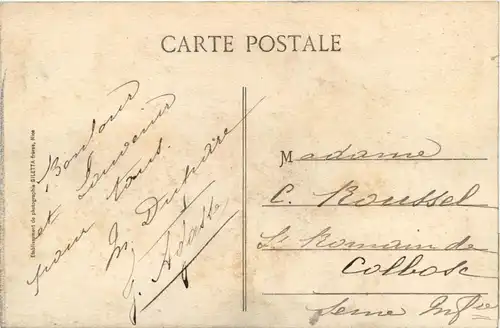 CARTE POSTALE
Etablissement de photographie GILETTA frères, Nice
Bonjour
et Souvenir
pour tous.
Madame
C. Roussel
St Romain de
Colbosc
Seine Infre